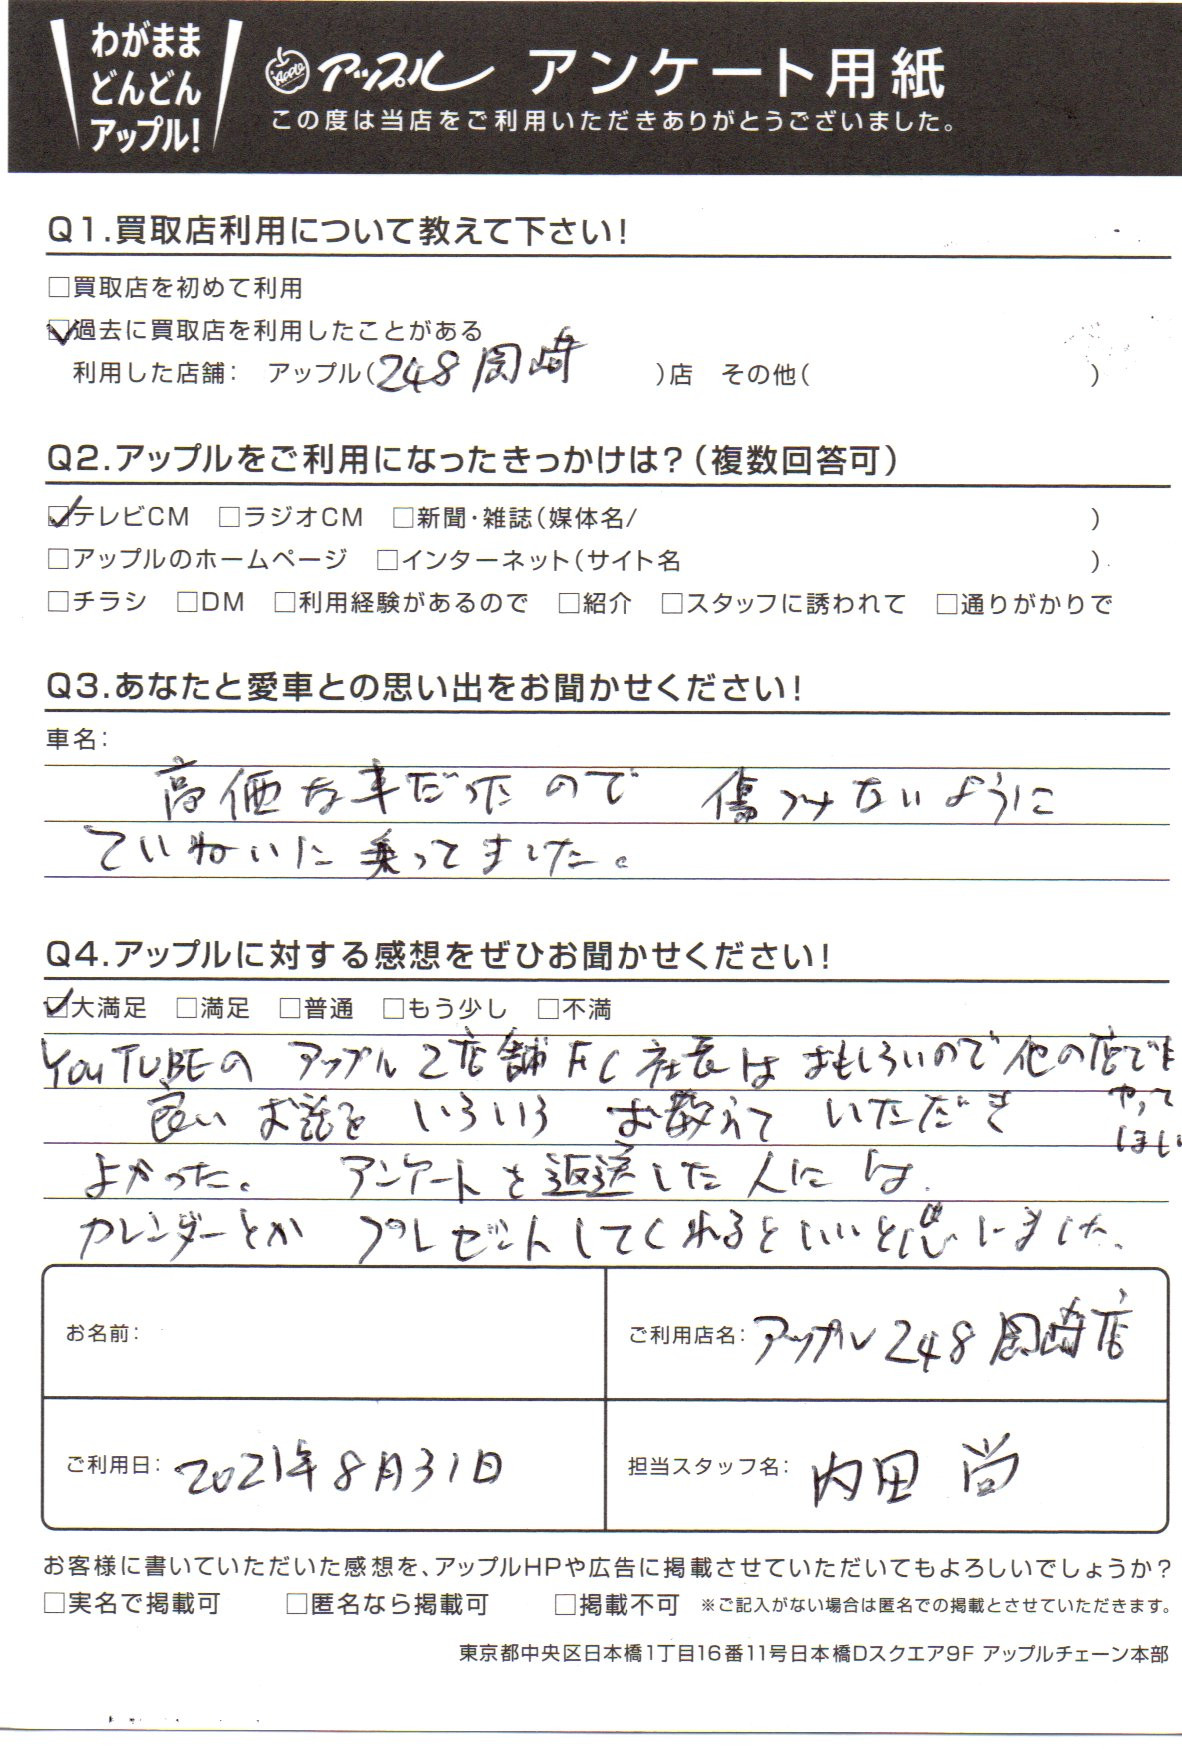 わがまま
どんどん
アップル!
Apple アップル アンケート用紙
この度は当店をご利用いただきありがとうございました。
Q1.買取店利用について教えて下さい!
□買取店を初めて利用
☑過去に買取店を利用したことがある
利用した店舗: アップル(248岡崎 )店 その他( )
Q2.アップルをご利用になったきっかけは?(複数回答可)
☑テレビCM □ラジオCM □新聞・雑誌(媒体名/ )
□アップルのホームページ □インターネット(サイト名 )
□チラシ □DM □利用経験があるので □紹介 □スタッフに誘われて □通りがかりで
Q3.あなたと愛車との思い出をお聞かせください!
車名:
高価な車だったので 傷つけないように
ていねいに乗ってました。
Q4.アップルに対する感想をぜひお聞かせください!
☑大満足 □満足 □普通 □もう少し □不満
YouTUBEの アップル2店舗FC社長は おもしろいので他の店でも
やって
ほしい
良い お話を いろいろ お教えて いただき
よかった。 アンケートを返送した人には
カレンダーとか プレゼントしてくれるといいと思いました。
お名前:
ご利用店名: アップル248岡崎店
ご利用日: 2021年8月31日
担当スタッフ名: 内田 尚
お客様に書いていただいた感想を、アップルHPや広告に掲載させていただいてもよろしいでしょうか?
□実名で掲載可 □匿名なら掲載可 □掲載不可 ※ご記入がない場合は匿名での掲載とさせていただきます。
東京都中央区日本橋1丁目16番11号日本橋Dスクエア9F アップルチェーン本部